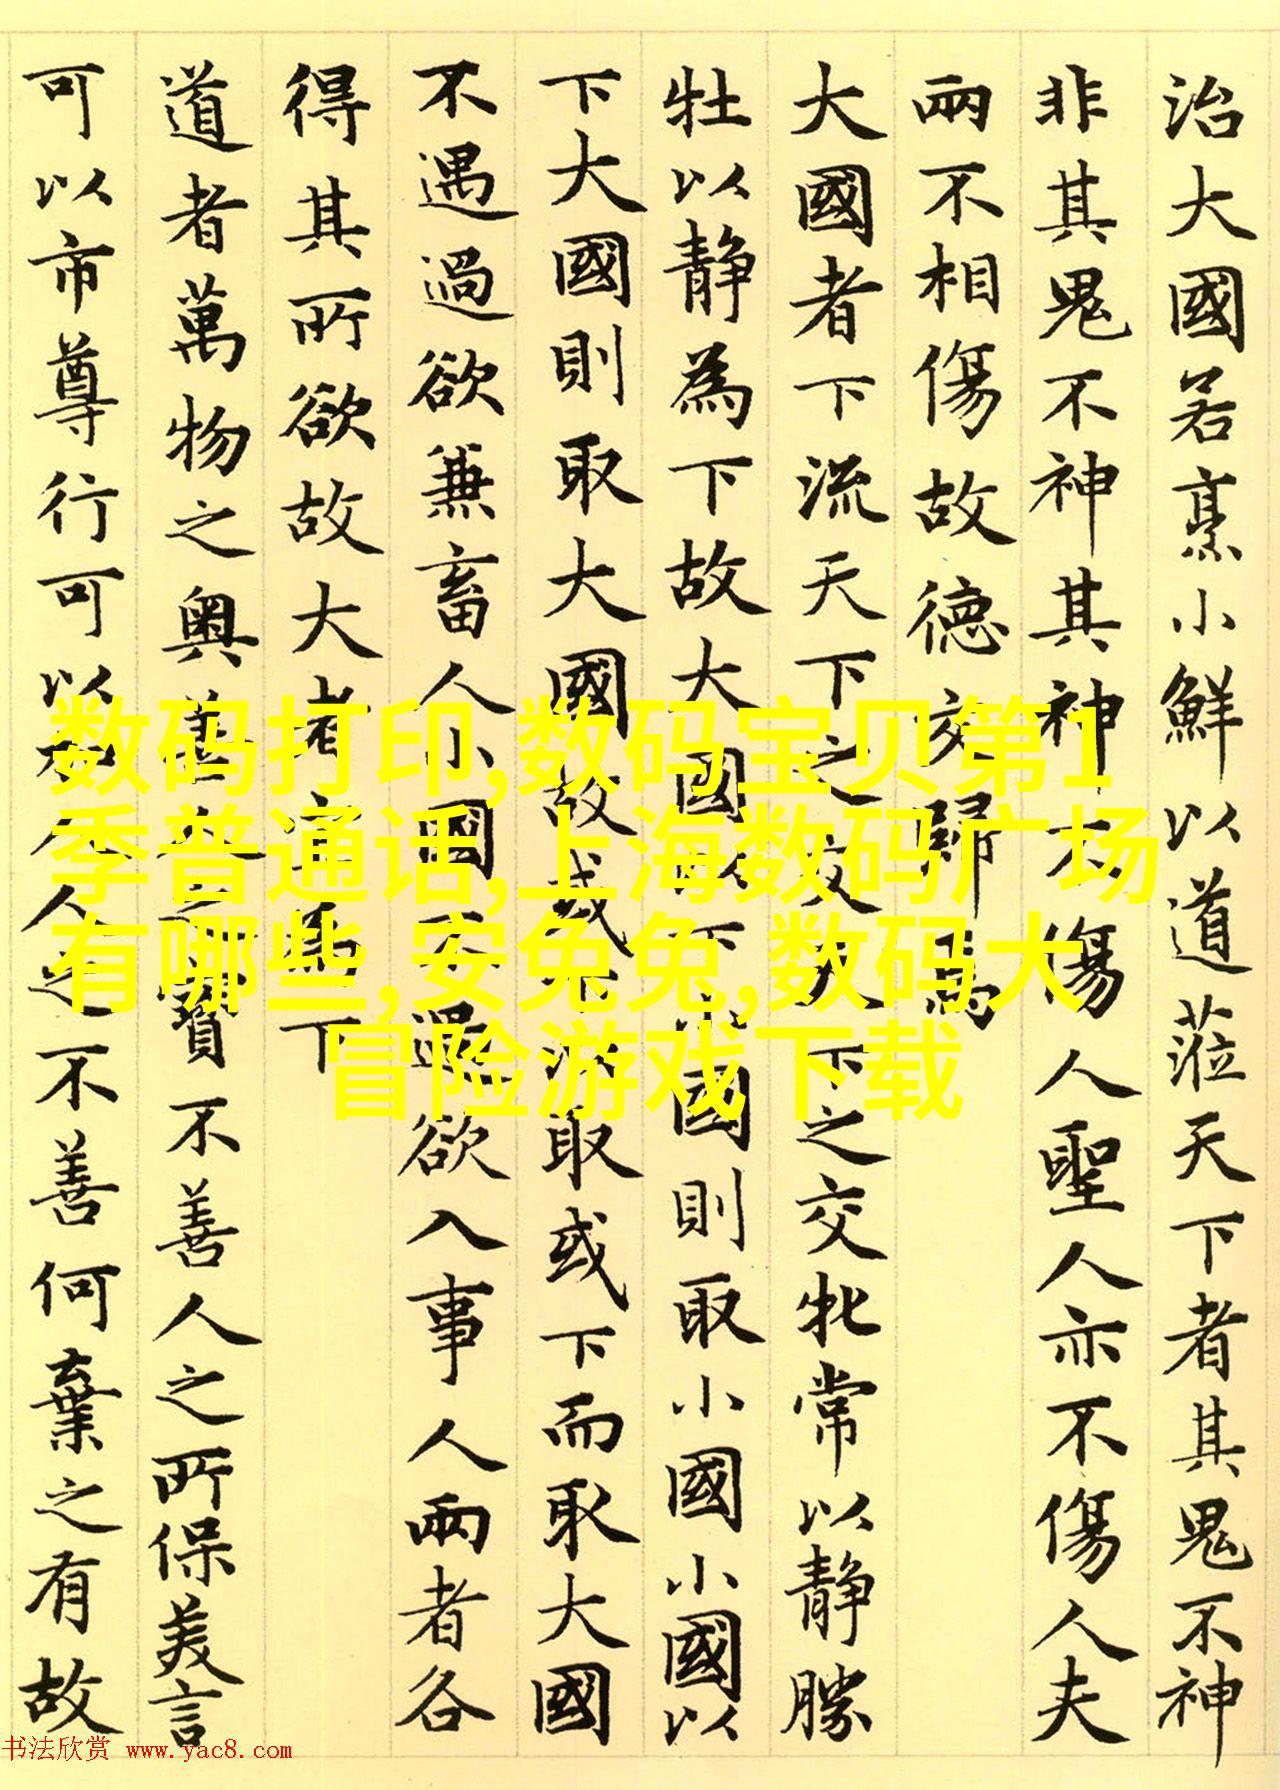 治大國若烹小鮮以道蒞天下者其鬼不神
非其鬼不神其神不傷人聖人亦不傷人夫
兩不相傷故德交歸焉
大國者下流天下之交天下之交牝常以静勝
牡以静為下故大國以下小國則取小國小國以
下大國則取大國故或下以取或下而取大國
不遇過欲兼畜人小國不過欲入事人兩者各
得其所欲故大者宜為下
道者萬物之奧善人之寶不善人之所保美言
可以市尊行可以加人人之不善何棄之有故
数码打印,数码宝贝第1
季普通话,上海数码广场
有哪些,安兔兔,数码大
冒险游戏下载
书法欣赏 www.yac8.com